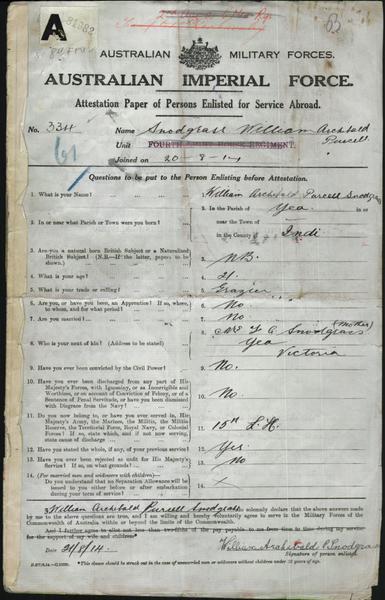 A
81382
B
AUSTRALIAN MILITARY FORCES.
AUSTRALIAN IMPERIAL FORCE.
Attestation Paper of Persons Enlisted for Service Abroad.
No. 334 Name Snodgrass William Archibald Purcell
Unit FOURTH LIGHT HORSE REGIMENT.
Joined on 20-8-14
Questions to be put to the Person Enlisting before Attestation.
1. What is your Name? 1. William Archibald Purcell Snodgrass
2. In or near what Parish or Town were you born? 2. In the Parish of Yea in or
near the Town of
in the County of Indi
3. Are you a natural born British Subject or a Naturalized
British Subject? (N.B.—If the latter, papers to be
shown.) 3. NB.
4. What is your age? 4. 21
5. What is your trade or calling? 5. Grazier
6. Are you, or have you been, an Apprentice? If so, where,
to whom, and for what period? 6. No
7. Are you married? 7. No
8. Who is your next of kin? (Address to be stated) 8. Mrs F C Snodgrass (Mother)
Yea
Victoria
9. Have you ever been convicted by the Civil Power? 9. No.
10. Have you ever been discharged from any part of His
Majesty's Forces, with Ignominy, or as Incorrigible and
Worthless, or on account of Conviction of Felony, or of a
Sentence of Penal Servitude, or have you been dismissed
with Disgrace from the Navy? 10. No
11. Do you now belong to, or have you ever served in, His
Majesty's Army, the Marines, the Militia, the Militia
Reserve, the Territorial Force, Royal Navy, or Colonial
Forces? If so, state which, and if not now serving,
state cause of discharge 11. 15th L.H.
12. Have you stated the whole, if any, of your previous service? 12. Yes.
13. Have you ever been rejected as unfit for His Majesty's
Service? If so, on what grounds? 13. No
14. (For married men and widowers with children)
Do you understand that no Separation Allowance will be
issued to you either before or after embarkation
during your term of service? 14. ×
I, William Archibald Purcell Snodgrass, solemnly declare that the above answers made
by me to the above questions are true, and I am willing and hereby voluntarily agree to serve in the Military Forces of the
Commonwealth of Australia within or beyond the limits of the Commonwealth.
And I further agree to allot not less than two-fifths of the pay payable to me from time to time during my service
for the support of my wife and children.
Date 21/8/14. William Archibald P. Snodgrass
Signature of person enlisted.